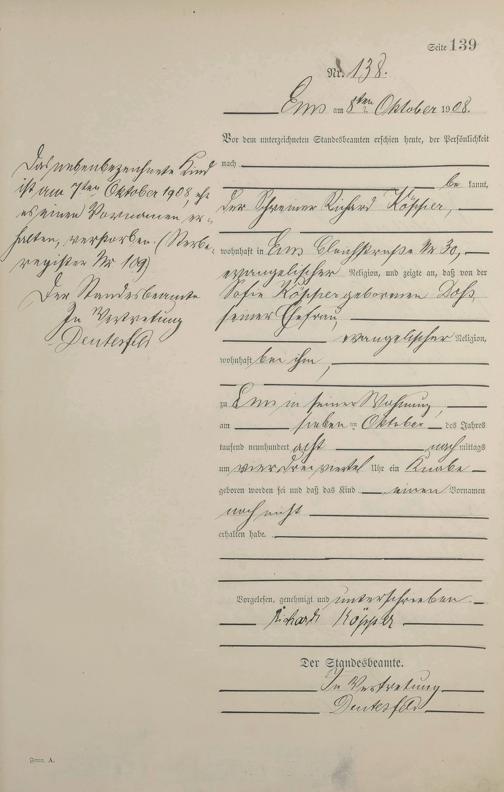 Seite 139
Nr. 138.
Ems am 8ten Oktober 1908.
Vor dem unterzeichneten Standesbeamten erschien heute, der Persönlichkeit
nach
be kannt,
der Schreiner Richard
wohnhaft in Ems Bleichstraße Nr 30,
evangelischer Religion, und zeigte an, daß von der
Sofie geborenen
seiner Ehefrau,
evangelischer Religion,
wohnhaft bei ihm,
zu Ems in seiner Wohnung,
am sieben ten Oktober des Jahres
tausend neunhundert acht nach mittags
um vier dreiviertel Uhr ein Knabe
geboren worden sei und daß das Kind einen Vornamen
noch nicht
erhalten habe.
Vorgelesen, genehmigt und unterschrieben
Richard
Der Standesbeamte.
In Vertretung
Das nebenbezeichnete Kind
ist am 7ten Oktober 1908, ehe
es einen Vornamen er-
halten, verstorben. (Sterbe-
register Nr 109)
Der Standesbeamte
In Vertretung
Form. A.